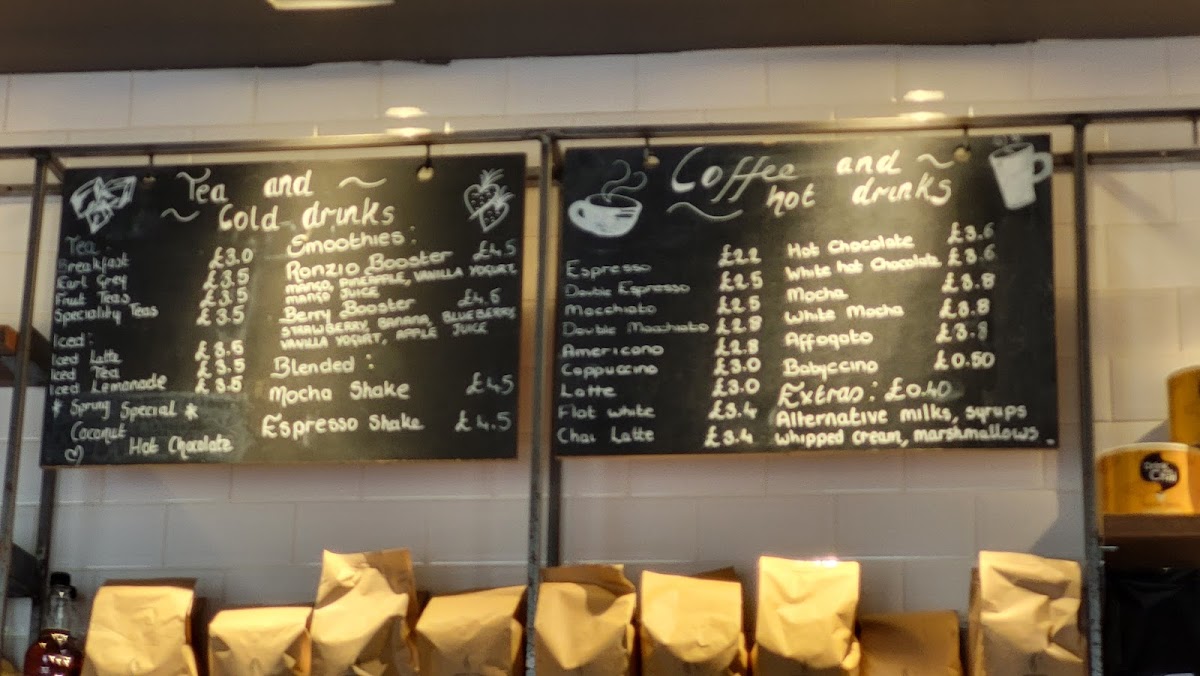 Tea and ~
~ Cold drinks
Tea:
Breakfast £3.0
Earl Grey £3.5
Fruit Teas £3.5
Speciality Teas £3.5
Iced:
Iced Latte £3.5
Iced Tea £3.5
Iced Lemonade £3.5
* Spring Special *
Coconut
Hot Chocolate
Smoothies:
Ronzio Booster £4.5
MANGO, PINEAPPLE, VANILLA YOGURT,
MANGO JUICE
Berry Booster £4.6
STRAWBERRY, BANANA, BLUEBERRY,
VANILLA YOGURT, APPLE JUICE
Blended:
Mocha Shake £4.5
Espresso Shake £4.5
Coffee and ~
~ hot drinks
Espresso £2.2
Double Espresso £2.5
Macchiato £2.5
Double Macchiato £2.8
Americano £2.8
Cappuccino £3.0
Latte £3.0
Flat white £3.4
Chai Latte £3.4
Hot Chocolate £3.6
White hot Chocolate £3.6
Mocha £3.8
White Mocha £3.8
Affogato £3.8
Babyccino £0.50
Extras: £0.40
Alternative milks, syrups
whipped cream, marshmallows